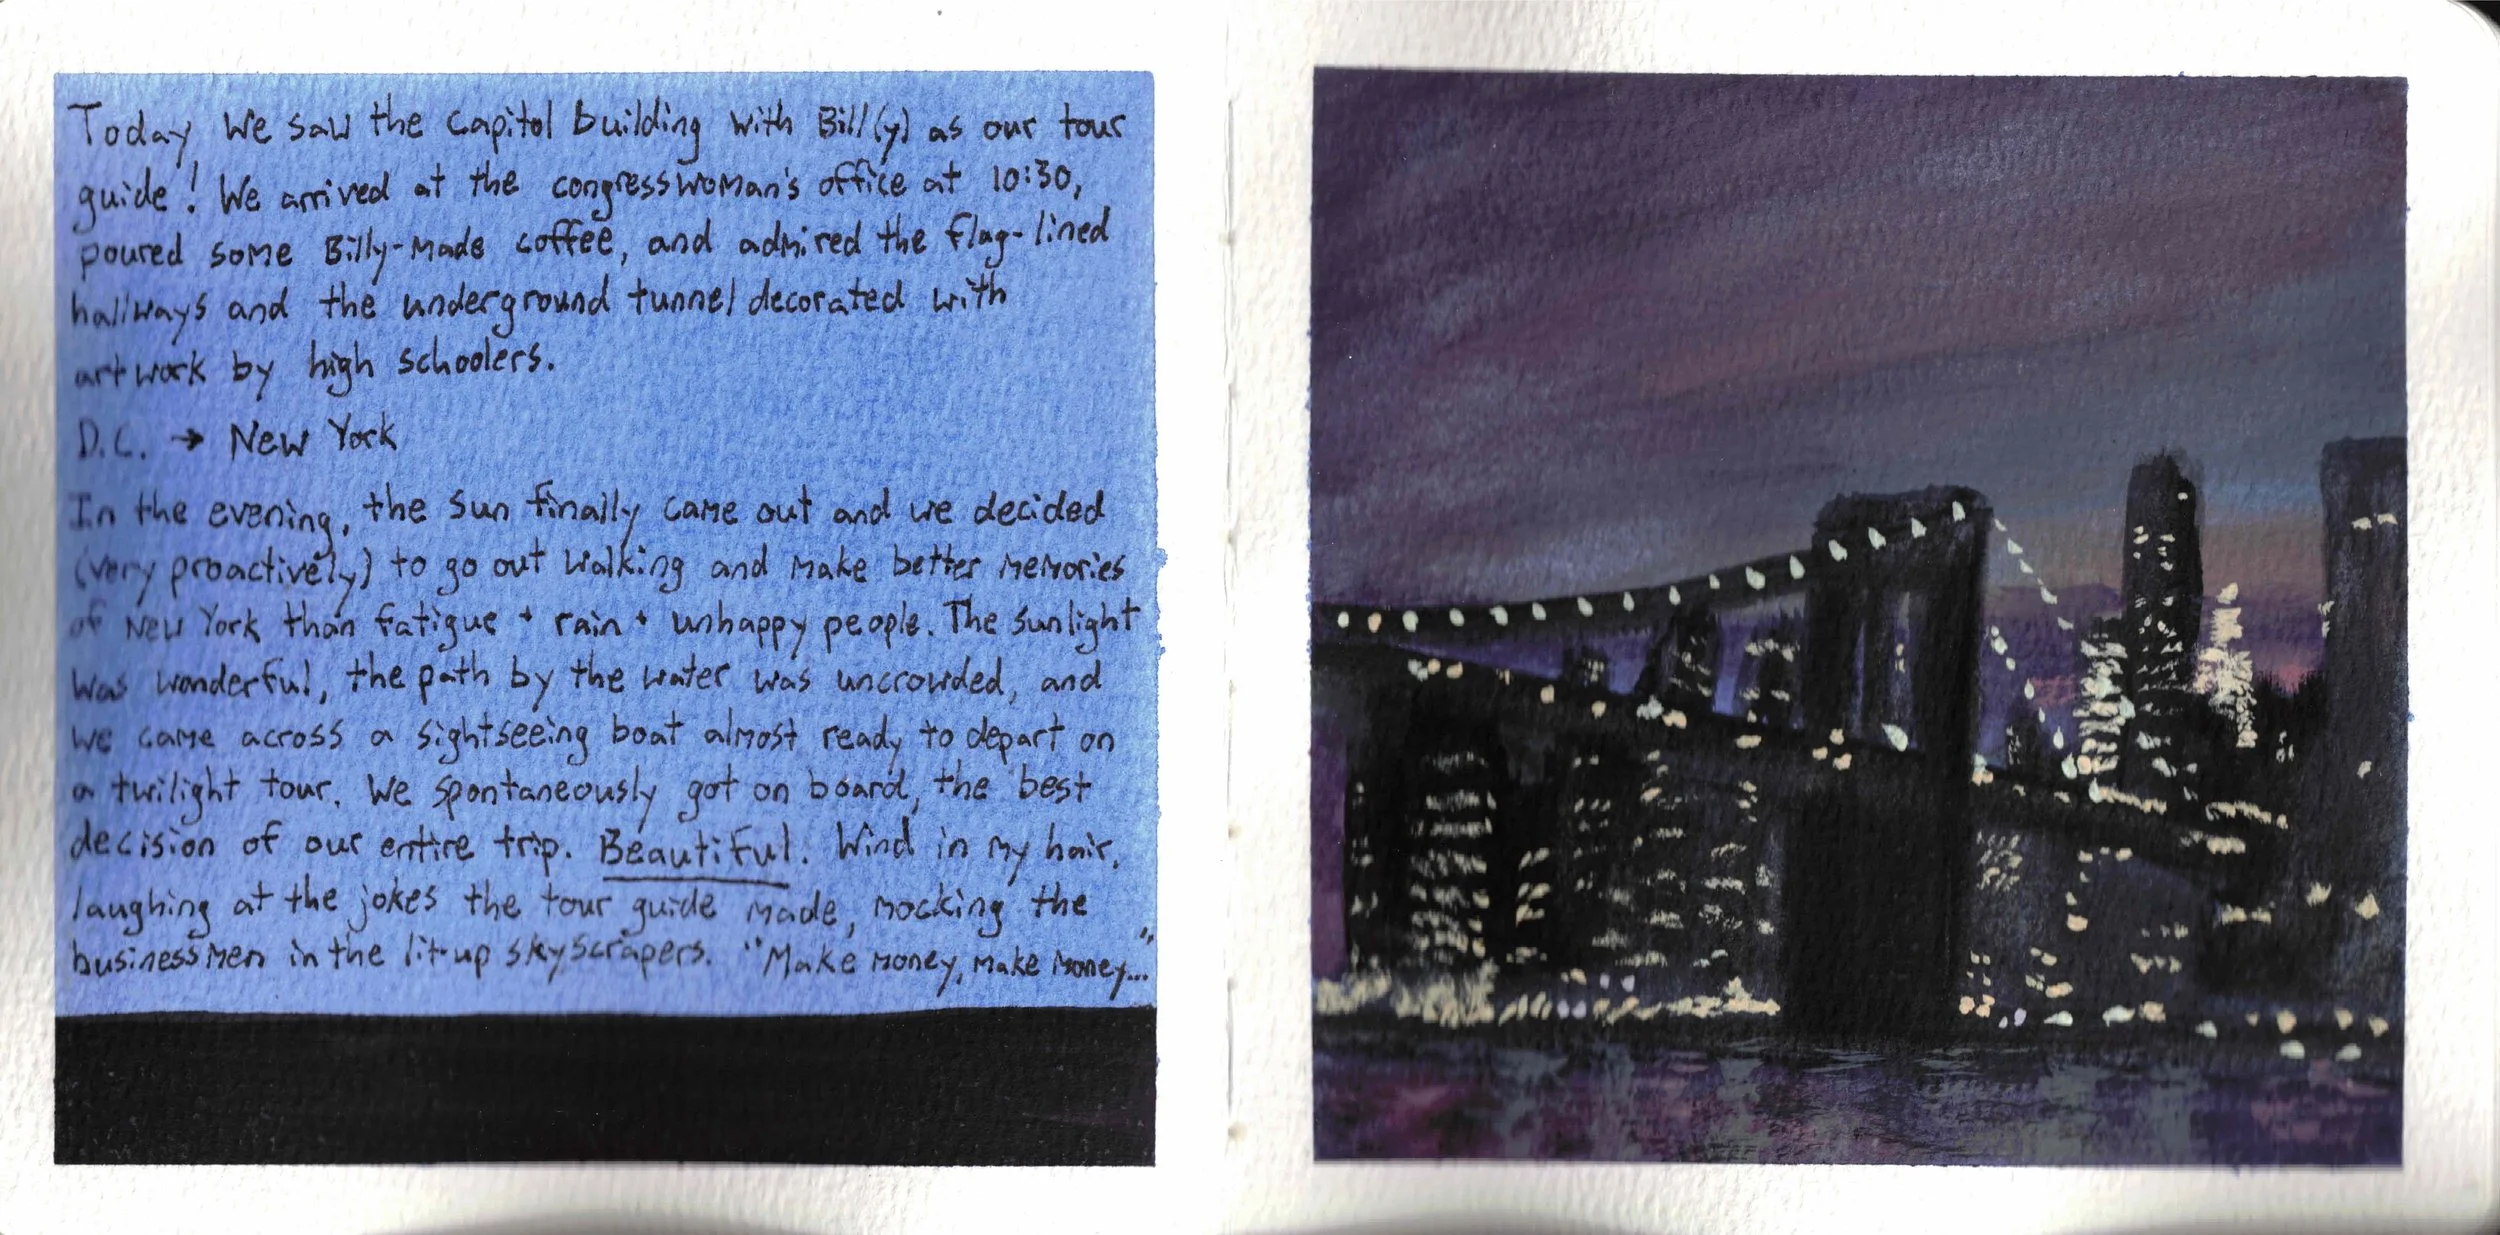 Today we saw the Capitol building with Bill(y) as our tour
guide! We arrived at the congresswoman's office at 10:30,
poured some Billy-made coffee, and admired the flag-lined
hallways and the underground tunnel decorated with
artwork by high schoolers.
D.C. → New York
In the evening, the sun finally came out and we decided
(very proactively) to go out walking and make better memories
of New York than fatigue + rain + unhappy people. The sunlight
was wonderful, the path by the water was uncrowded, and
we came across a sightseeing boat almost ready to depart on
a twilight tour. We spontaneously got on board, the best
decision of our entire trip. Beautiful. Wind in my hair,
laughing at the jokes the tour guide made, mocking the
businessmen in the lit-up skyscrapers. "Make money, make money..."